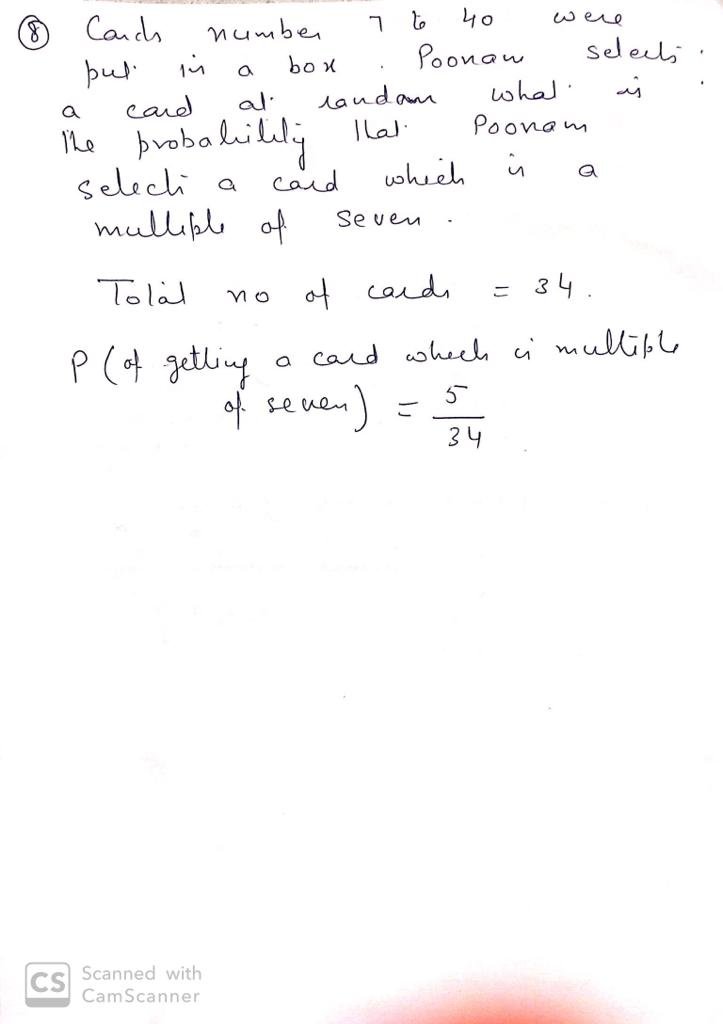 ⑧ Cards number 7 to 40 were
put in a box. Poonam selects
a card at random what is
the probability that Poonam
selects a card which is a
multiple of seven.
Total no of cards = 34.
P (of getting a card which is multiple
of seven) = 5/34
CS Scanned with
CamScanner